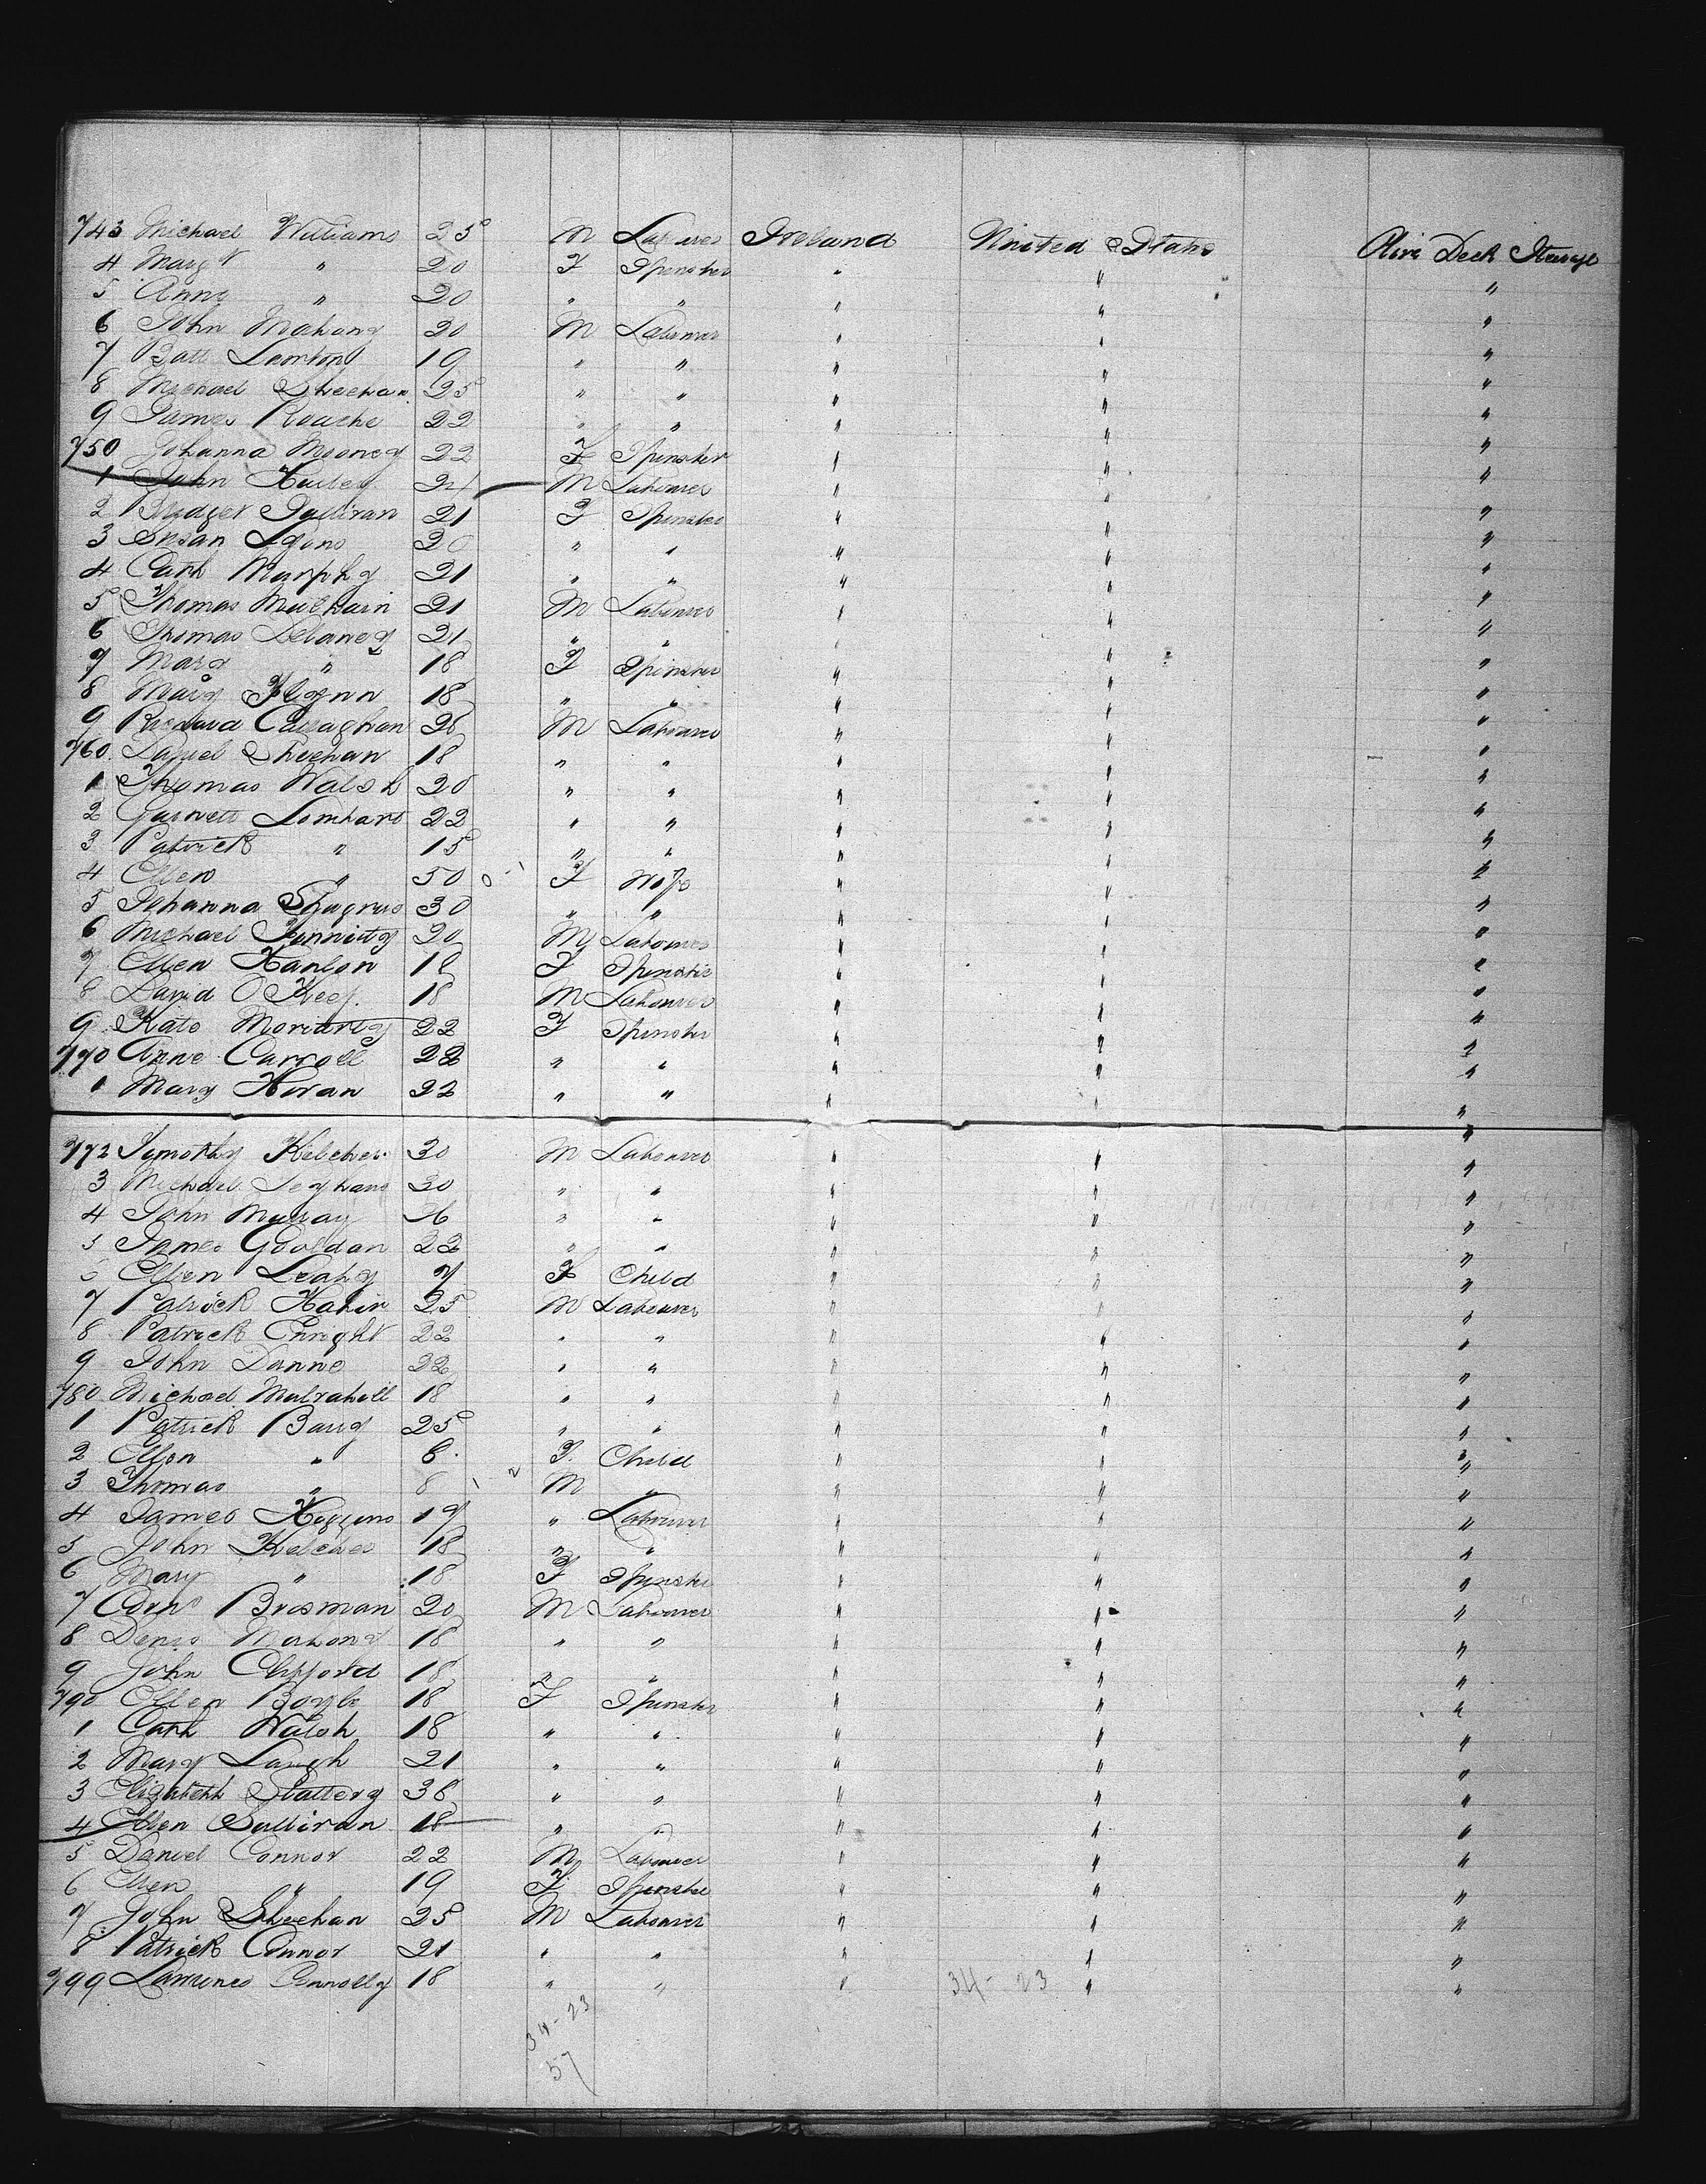 743 Michael Williams 25 M Labourer Ireland United States Main Deck Steerage
4 Margt " 20 F Spinster " " "
5 Anne " 20 " " " " "
6 John Mahony 20 M Labourer " " "
7 Batt 19 " " " " "
8 Michael Sheehan 25 " " " " "
9 James Roache 22 " " " " "
750 Johanna Mooney 22 F Spinster " " "
1 John Hurley 24 M Labourer " " "
2 Bridget Sullivan 21 F Spinster " " "
3 Susan Lyons 20 " " " " "
4 Cath Murphy 21 " " " " "
5 Thomas 21 M Labourer " " "
6 Thomas Delaney 21 " " " " "
7 Mary " 18 F Spinster " " "
8 Mary Flynn 18 " " " " "
9 Richard Callaghan 26 M Labourer " " "
760 Daniel Sheehan 18 " " " " "
1 Thomas Walsh 20 " " " " "
2 Garrett Lombard 22 " " " " "
3 Patrick " 15 " " " " "
4 Ellen " 50 F Wife " " "
5 Johanna Shugrue 30 " " " " "
6 Michael 20 M Labourer " " "
7 Ellen Hanlon 18 F Spinster " " "
8 David O Keef. 18 M Labourer " " "
9 Kate Moriarty 22 F Spinster " " "
770 Anne Carroll 22 " " " " "
1 Mary Horan 22 " " " " "
772 Tymothy Kelcher 30 M Labourer " " "
3 Michael 30 " " " " "
4 John Murray " " " " "
5 James Gooldan 22 " " " " "
6 Ellen Leahy 7 F Child " " "
7 Patrick 25 M Labourer " " "
8 Patrick Enright 22 " " " " "
9 John Dunne 22 " " " " "
780 Michael Mulrahill 18 " " " " "
1 Patrick Barry 25 " " " " "
2 Ellen " 6 F. Child " " "
3 Thomas " 8 M " " " "
4 James Higgins 19 " Labourer " " "
5 John Kelcher 18 " " " " "
6 Mary " 18 F Spinster " " "
7 Corns Brosman 20 M Labourer " " "
8 Denis Mahony 18 " " " " "
9 John Clifford 18 " " " " "
790 Ellen Boyle 18 F Spinster " " "
1 Cath Walsh 18 " " " " "
2 Mary 21 " " " " "
3 Elizabeth Slattery 38 " " " " "
4 Ellen Sullivan 18 " " " " "
5 Daniel Connor 22 M Labourer " " "
6 Ellen " 19 F Spinster " " "
7 John Sheehan 25 M Labourer " " "
8 Patrick Connor 21 " " " " "
799 Lawrence Connolly 18 " " " " "
34-23
34-23
57